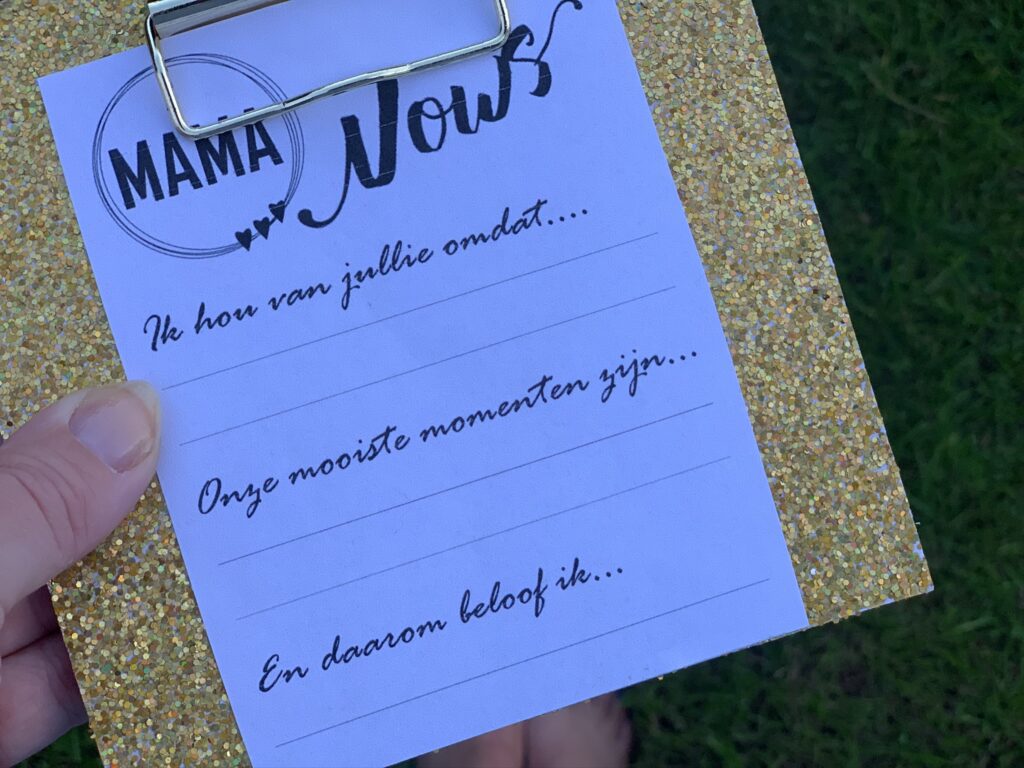 MAMA Vows
Ik hou van jullie omdat....
Onze mooiste momenten zijn...
En daarom beloof ik...